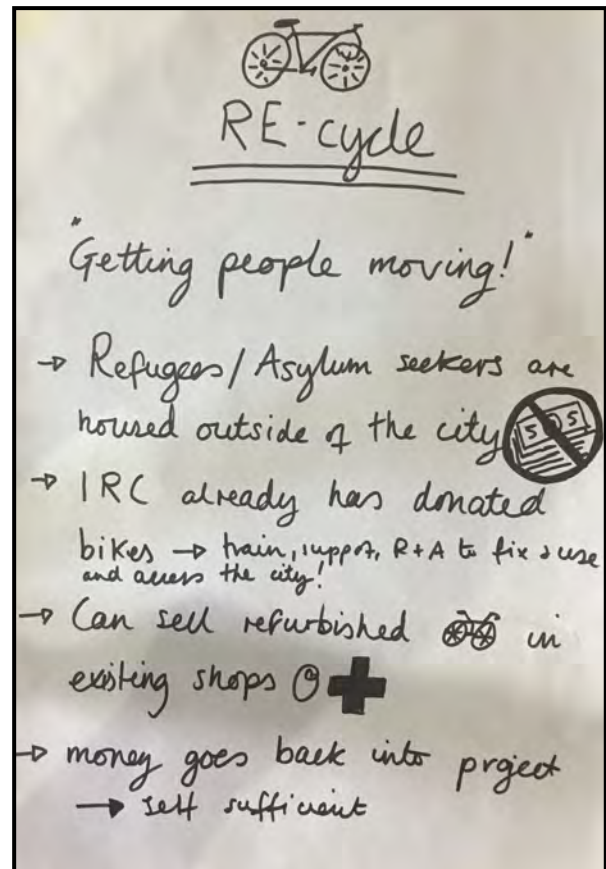 RE-cycle
"Getting people moving!"
→ Refugees/Asylum seekers are
housed outside of the city
5 5
→ IRC already has donated
bikes → train, support, R+A to fix & use
and access the city!
→ Can sell refurbished in
existing shops
→ money goes back into project
→ self sufficient